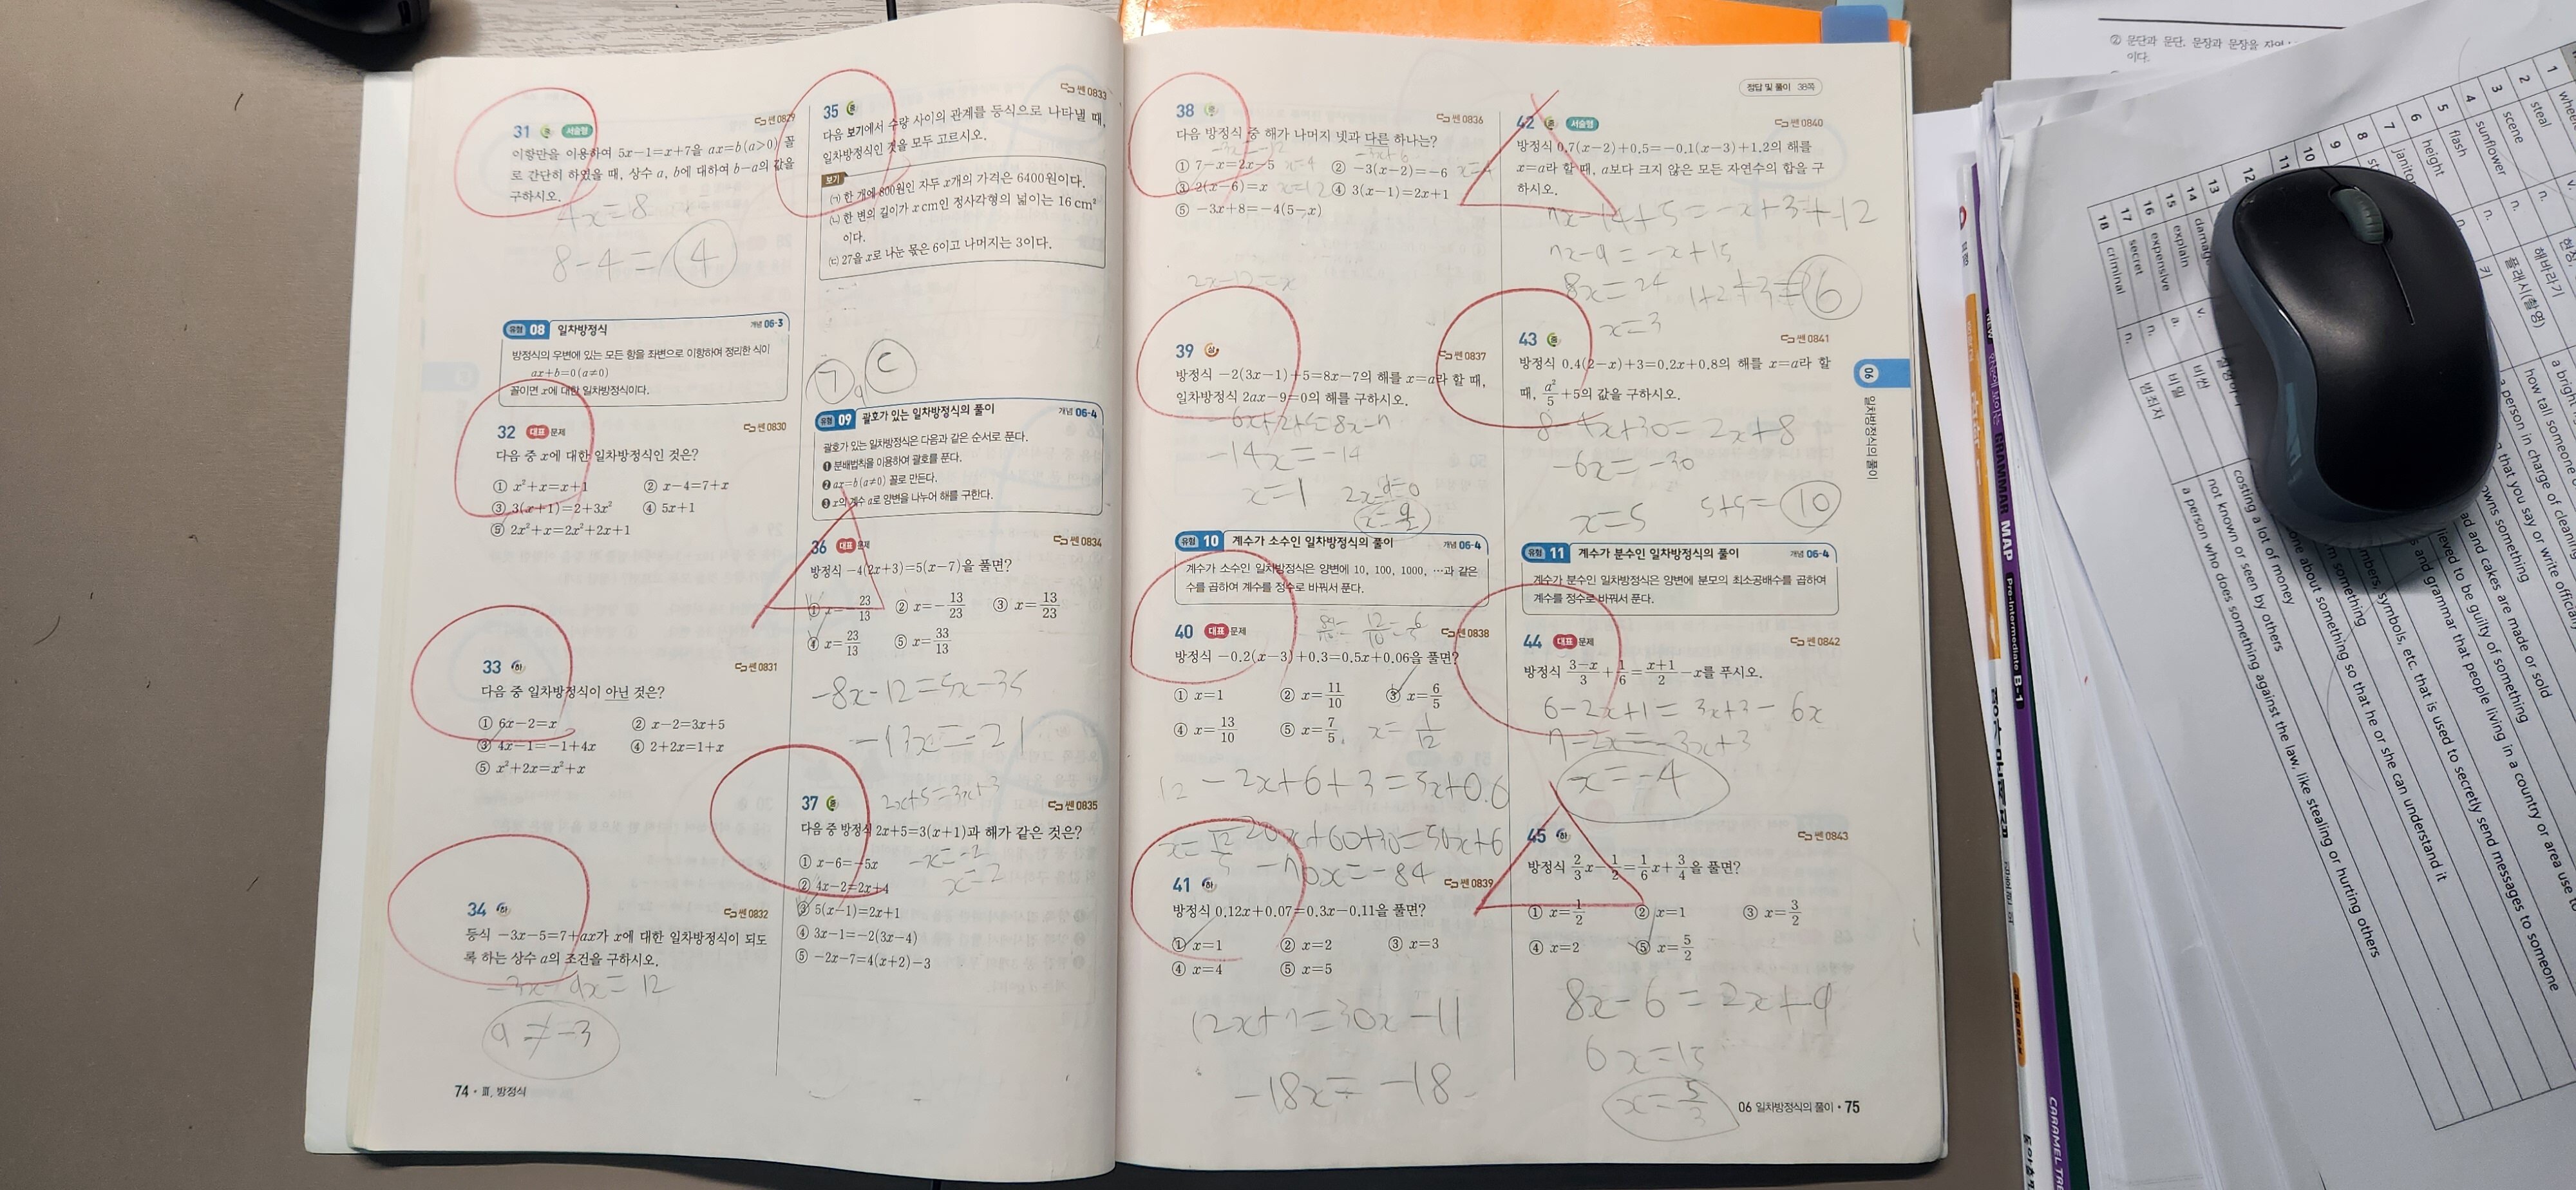 31 중 서술형
쎈 0829
이항만을 이용하여 5x-1=x+7을 ax=b(a>0) 꼴
로 간단히 하였을 때, 상수 a, b에 대하여 b-a의 값을
구하시오.
4x=8
8-4=4
유형 08 일차방정식 개념 06-3
방정식의 우변에 있는 모든 항을 좌변으로 이항하여 정리한 식이
ax+b=0(a≠0)
꼴이면 x에 대한 일차방정식이다.
32 대표 문제
쎈 0830
다음 중 x에 대한 일차방정식인 것은?
① x²+x=x+1 ② x-4=7+x
③ 3(x+1)=2+3x² ④ 5x+1
⑤ 2x²+x=2x²+2x+1
33 하
쎈 0831
다음 중 일차방정식이 아닌 것은?
① 6x-2=x ② x-2=3x+5
③ 4x-1=-1+4x ④ 2+2x=1+x
⑤ x²+2x=x²+x
34 하
쎈 0832
등식 -3x-5=7+ax가 x에 대한 일차방정식이 되도
록 하는 상수 a의 조건을 구하시오.
-3x-ax=12
a≠-3
74 · Ⅲ. 방정식
35 중
쎈 0833
다음 보기에서 수량 사이의 관계를 등식으로 나타낼 때,
일차방정식인 것을 모두 고르시오.
보기
㈀ 한 개에 800원인 자두 x개의 가격은 6400원이다.
㈁ 한 변의 길이가 x cm인 정사각형의 넓이는 16 cm²
이다.
㈂ 27을 x로 나눈 몫은 6이고 나머지는 3이다.
ㄱ, ㄷ
유형 09 괄호가 있는 일차방정식의 풀이 개념 06-4
괄호가 있는 일차방정식은 다음과 같은 순서로 푼다.
❶ 분배법칙을 이용하여 괄호를 푼다.
❷ ax=b(a≠0) 꼴로 만든다.
❸ x의 계수 a로 양변을 나누어 해를 구한다.
36 대표 문제
쎈 0834
방정식 -4(2x+3)=5(x-7)을 풀면?
① x=-23/13 ② x=-13/23 ③ x=13/23
④ x=23/13 ⑤ x=33/13
-8x-12=5x-35
-13x=-21
37 중
2x+5=3x+3
쎈 0835
다음 중 방정식 2x+5=3(x+1)과 해가 같은 것은?
① x-6=-5x
-x=-2
② 4x-2=2x+4
x=2
③ 5(x-1)=2x+1
④ 3x-1=-2(3x-4)
⑤ -2x-7=4(x+2)-3
정답 및 풀이 38쪽
38 중
쎈 0836
다음 방정식 중 해가 나머지 넷과 다른 하나는?
① 7-x=2x-5 x=4 ② -3(x-2)=-6 x=4
③ 2(x-6)=x x=12 ④ 3(x-1)=2x+1
⑤ -3x+8=-4(5-x)
2x-12=x
39 상
쎈 0837
방정식 -2(3x-1)+5=8x-7의 해를 x=a라 할 때,
일차방정식 2ax-9=0의 해를 구하시오.
-6x+2+5=8x-7
-14x=-14
x=1
2x-9=0
x=9/2
유형 10 계수가 소수인 일차방정식의 풀이 개념 06-4
계수가 소수인 일차방정식은 양변에 10, 100, 1000, …과 같은
수를 곱하여 계수를 정수로 바꿔서 푼다.
40 대표 문제
12/10=6/5
쎈 0838
방정식 -0.2(x-3)+0.3=0.5x+0.06을 풀면?
① x=1 ② x=11/10 ③ x=6/5
④ x=13/10 ⑤ x=7/5
x=1/12
-2x+6+3=5x+0.6
-20x+60+30=50x+6
-70x=-84
41 하
쎈 0839
방정식 0.12x+0.07=0.3x-0.11을 풀면?
① x=1 ② x=2 ③ x=3
④ x=4 ⑤ x=5
12x+7=30x-11
-18x=-18
42 중 서술형
쎈 0840
방정식 0.7(x-2)+0.5=-0.1(x-3)+1.2의 해를
x=a라 할 때, a보다 크지 않은 모든 자연수의 합을 구
하시오.
7x-14+5=-x+3+12
7x-9=-x+15
8x=24
1+2+3=6
x=3
43 중
쎈 0841
방정식 0.4(2-x)+3=0.2x+0.8의 해를 x=a라 할
때, a²/5+5의 값을 구하시오.
8-4x+30=2x+8
-6x=-30
x=5
5+5=10
유형 11 계수가 분수인 일차방정식의 풀이 개념 06-4
계수가 분수인 일차방정식은 양변에 분모의 최소공배수를 곱하여
계수를 정수로 바꿔서 푼다.
44 대표 문제
쎈 0842
방정식 (3-x)/3+1/6=(x+1)/2-x를 푸시오.
6-2x+1=3x+3-6x
7-2x=-3x+3
x=-4
45 하
쎈 0843
방정식 2/3x-1/2=1/6x+3/4을 풀면?
① x=1/2 ② x=1 ③ x=3/2
④ x=2 ⑤ x=5/2
8x-6=2x+9
6x=15
x=5/3
06 일차방정식의 풀이 · 75
06
일차방정식의 풀이
② 문단과 문단, 문장과 문장을
이다.
GRAMMAR MAP Pre-Intermediate B-1
CARAMEL TREE
1
2 steal
3 scene
4 sunflower n.
5 flash
6 height n.
7
8
9
10
11
12
13
14
15 explain v.
16 expensive a.
17 secret n.
18 criminal n.
해바라기
플래시(촬영)
키
비싼
비밀
범죄자
how tall someone
a person in charge of cleaning
that you say or write officially
owns something
and cakes are made or sold
lieved to be guilty of something
s and grammar that people living in a country or area use to
mbers, symbols, etc. that is used to secretly send messages to someone
m something
one about something so that he or she can understand it
costing a lot of money
not known or seen by others
a person who does something against the law, like stealing or hurting others